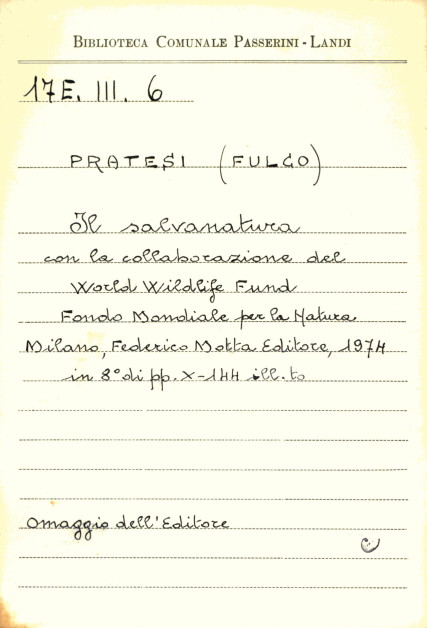 BIBLIOTECA COMUNALE PASSERINI - LANDI
17E. III. 6
PRATESI (FULCO)
Il salvanatura
con la collaborazione del
World Wildlife Fund
Fondo Mondiale per la Natura
Milano, Federico Motta Editore, 1974
in 8° di pp. X-144 ill.to
Omaggio dell'Editore